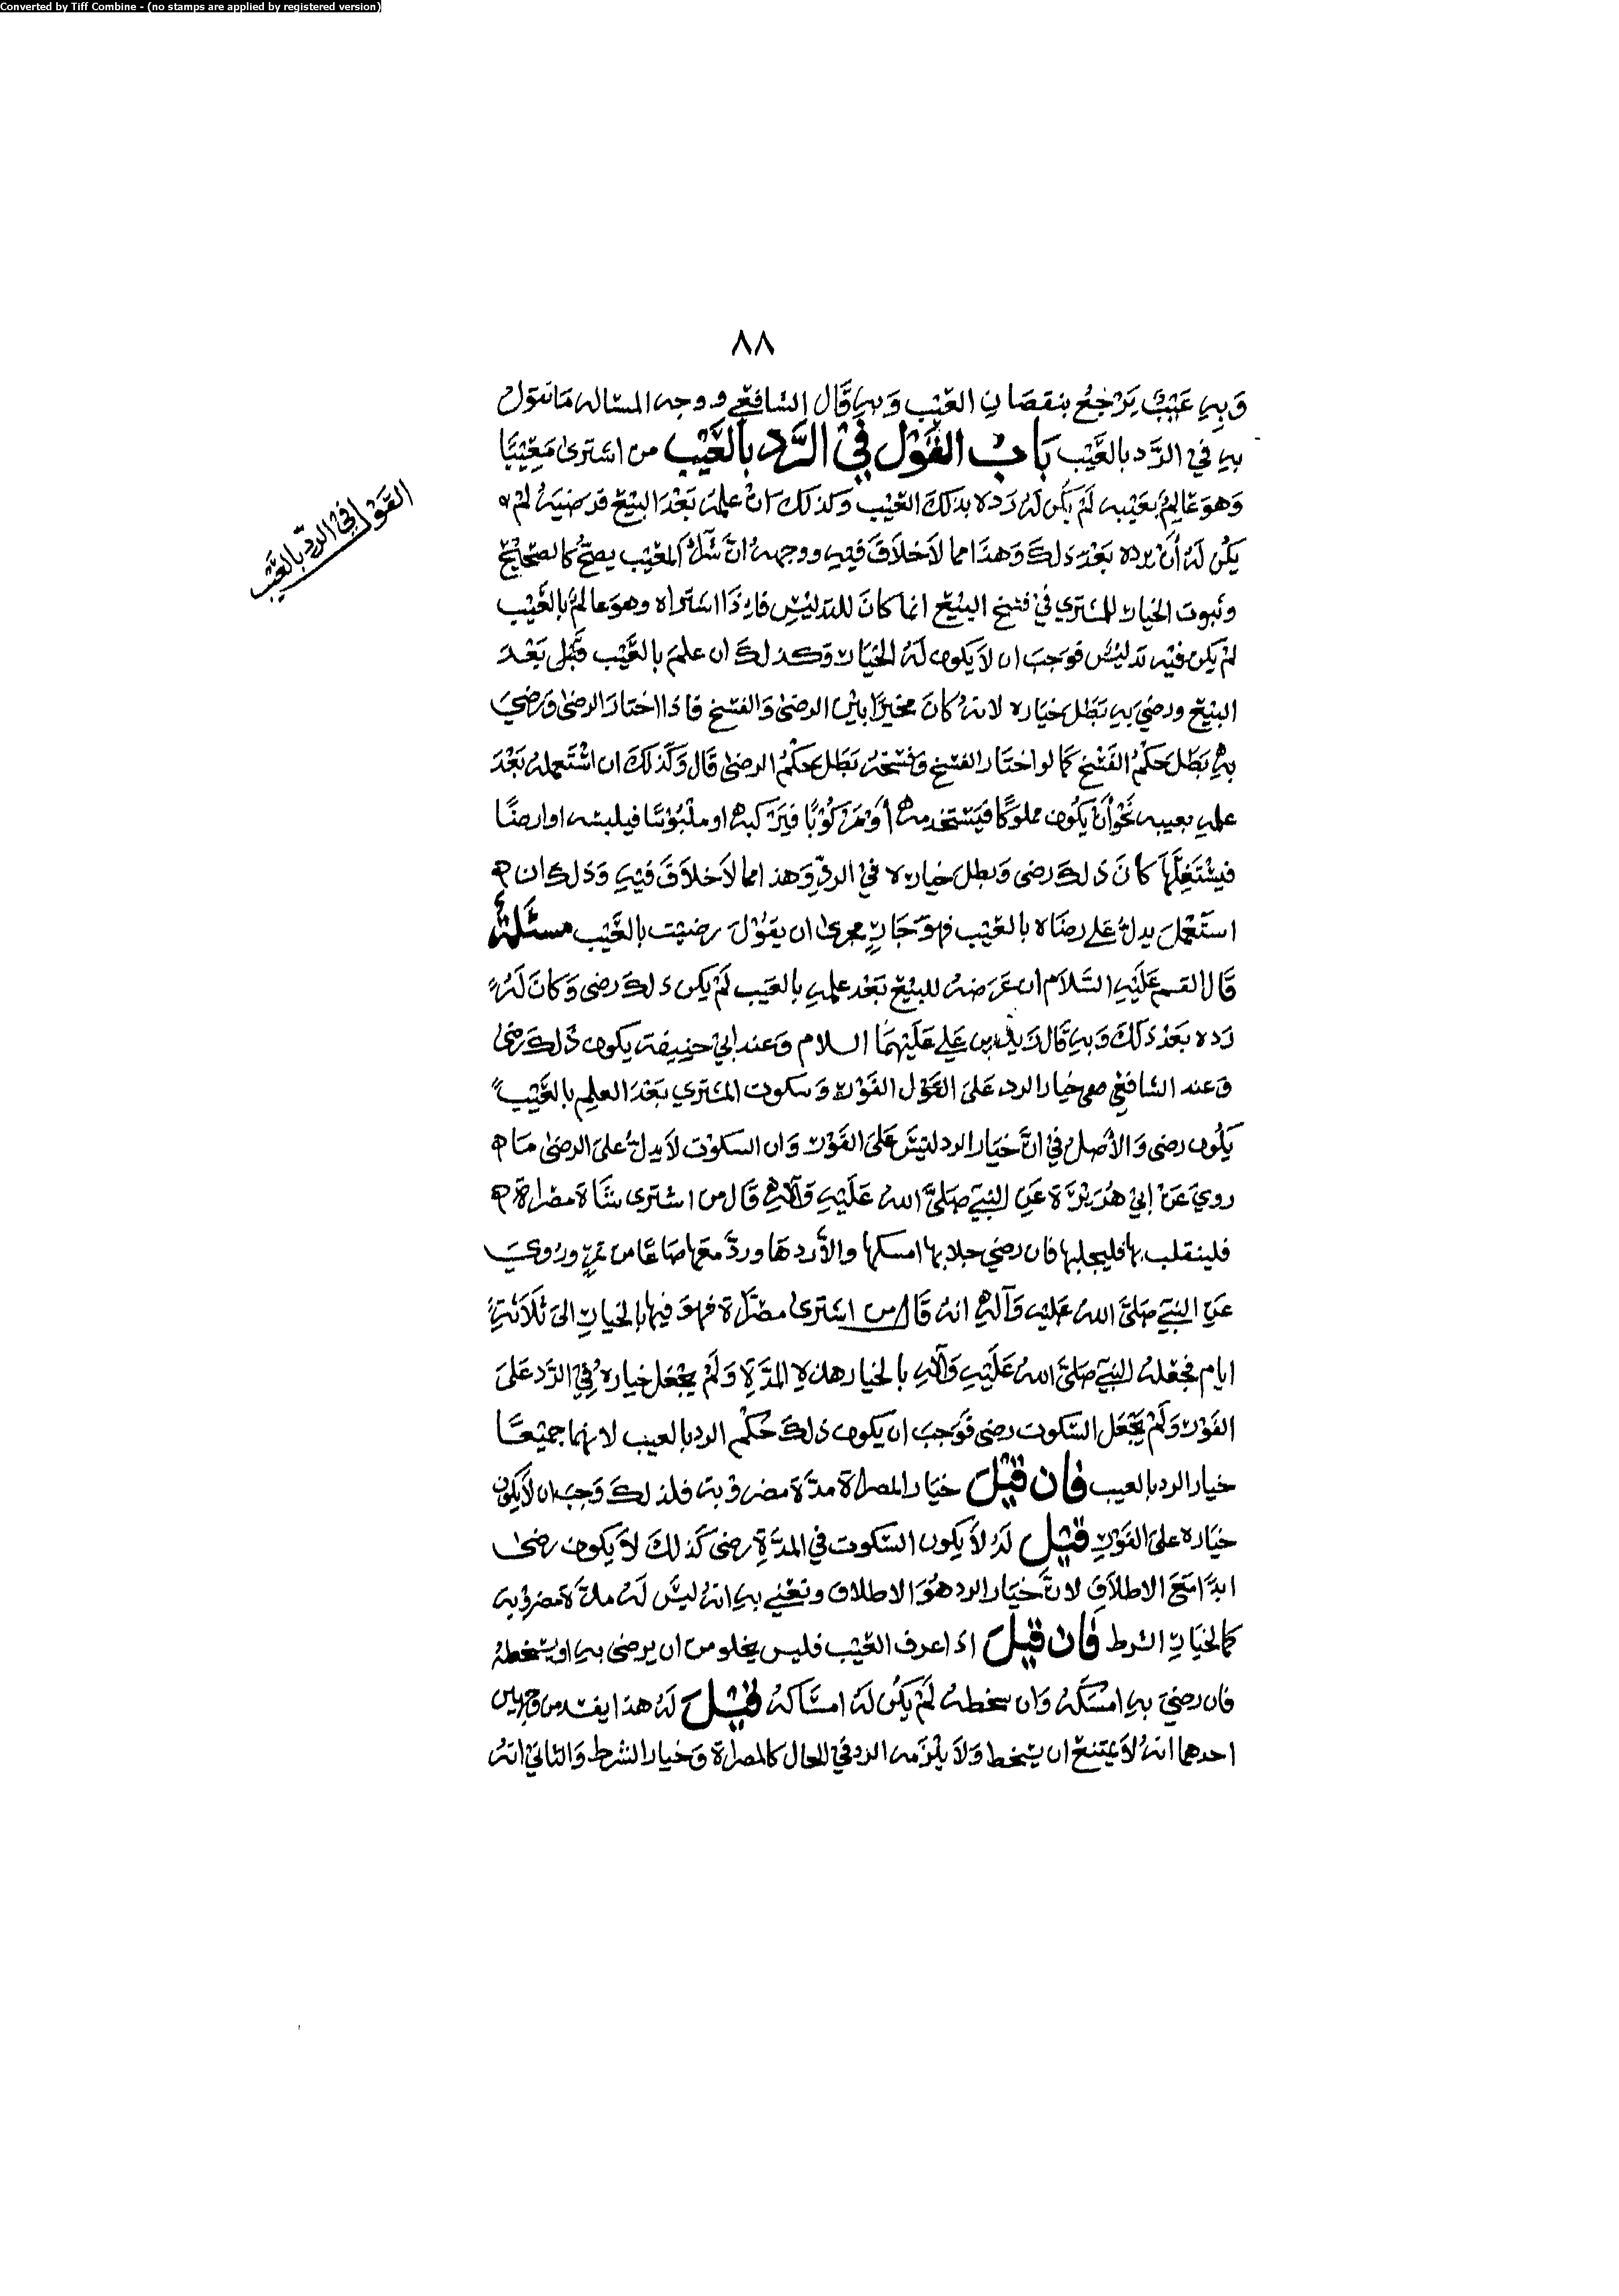 Converted by Tiff Combine - (no stamps are applied by registered version)
٨٨
وَبِهِ عَيْبٌ يَرْجِعُ بنقصَانِ العَيْب وَبهِ قَال الشافعي ووجه المسَاله مَا نقول
بهِ في الرَّد بالعَيْب بَابُ القَوْل فِيْ الرَّد بِالعَيْبِ من اشترىٰ مَعِيْبًا
وَهوَ عَالِمٌ بعَيْبه لَمْ يكُن لَهُ رَده بذلكَ العَيْب وكذلك انْ علمهُ بَعْدَ البيْع فرضيَهُ لمْ
يكُن لهُ أنْ يرده بَعْدَ ذلكَ وَهذا مما لاَ خلاَفَ فيهِ ووجههُ انَّ شرَآء المعَيْب يصحُّ كالصّحِيْح
وثبوت الخيار للمشتري فيْ فسْخ البيْع انما كانَ للتدليْسِ فاِذا اشتراه وهوَ عالمٌ بالعَيْب
لمْ يكن فيْه تدليْسٌ فوجبَ ان لاَ يكون لهُ الخيَار وكذلكَ ان علمَ بالعَيْب قبْل بَعْدَ
البيْع ورضيَ بهِ بَطَل خيَاره لانهُ كانَ مخيرًا بيْن الرضىٰ وَالفسْخ فاذا اختارَ الرضىٰ وَرضيَ
بهِ بَطَل حكْمُ الفَسْخ كما لو اختَار الفسْخ وَفسَخهُ بَطَل حكْمُ الرضىٰ قَال وَكَذلكَ ان اسْتَعملهُ بَعْدَ
علمهِ بعيبه نَحْوَ أنْ يكُون مملوكًا فيَسْتخدمهُ أوْ مَرْكُوبًا فيَرْكبهُ او ملْبُوْسًا فيلبسه او ارضًا
فيسْتَغِلَّهَا كانَ ذلكَ رضى وَبطل خياره في الردِّ وَهذا مما لاَ خلاَفَ فيْهِ وَذلك ان
استَعْملَ يدلُّ عَلى رضَاه بالعَيْب فهوَ جَارٍ مجرىٰ ان يقوْلَ رضيْت بالعَيْب مسئَلة
قَال القسم عَلَيْهِ السَّلاَم ان عَرَضهُ للبيْع بَعْد علمهِ بالعَيب لَمْ يكن ذلكَ رضى وَكانَ لَهُ
رَده بَعْدَ ذلكَ وَبهِ قَال زيد بن عَلي عَليْهِمَا السلام وَعند ابيْ حنيفة يكون ذَلكَ رضىٰ
وَعند الشافعيْ في خيار الرد عَلىَ القَوْل الفَوْر وَسكوت المشتري بَعْدَ العلم بالعَيْب
يكُون رضى وَالأصْل فيْ انَّ خيَار الرد ليْسَ عَلىَ الفَوْر وَان السكوْت لاَ يدلُّ علىَ الرضىٰ مَا
رويَ عَنْ ابيْ هُرَيْرَة عَنِ النبيّ صَلىَّ اللهُ عَلَيْهِ وَآلهِ قَال من اشترى شَاة مصَراة
فلينقلب بها فليحلبها فان رضيَ حلابها امسكها والاَّ ردهَا وردَّ معَها صَاعًا من تمرٍ ورُويَ
عَنِ النبيّ صَلىَّ اللهُ عَليْهِ وَآلهِ انهُ قَال من اشترىٰ مصَرَّاة فهوَ فيها بالخيَارِ الىَ ثلَاثَةِ
ايام فجَعَلهُ النبيّ صَلىَّ اللهُ عَلَيْهِ وَآلهِ بالخيَار هذه المدَّةِ وَلمْ يجْعَل خيارهُ فِيْ الرَّد عَلىَ
الفَوْر وَلَمْ يَجْعَل السّكوت رضى فَوَجبَ ان يكون ذلكَ حُكْم الرد بالعيب لانهما جميْعًا
خيار الرد بالعيب فان قيْلَ خيَار المصراة مدَّة مضروْبة فلذلكَ وَجبَ ان لاَ يكون
خيَاره علىَ الفَوْرِ قيْل لهُ لاَ يكون السّكوت في المدَّةِ رضى كَذلكَ لاَ يكون رضىٰ
ابدًا مَعَ الاطلاَقِ لانَّ خيَار الرد هُوَ الاطلاق ونَعْني بهِ انهُ ليْسَ لَهُ مدَّة مضروْبه
كالخيَارِ الشرط فَان قيْلَ اذا عرف العَيْب فليس يخلو من ان يرضى بهِ او يسْخطهُ
فان رضيَ بهِ امْسَكهُ وَان سخطهُ لَمْ يكُن لَهُ امسَاكهُ قيْلَ لهُ هذا يفسد من وجهين
احدهما انهُ لاَ يمتنع ان يسْخط وَلاَ يلْزَمه الرد في الحال كالمصراة وَخيار الشرط وَالثانيْ انهُ
القَوْل فيْ الردّ بالعَيْب